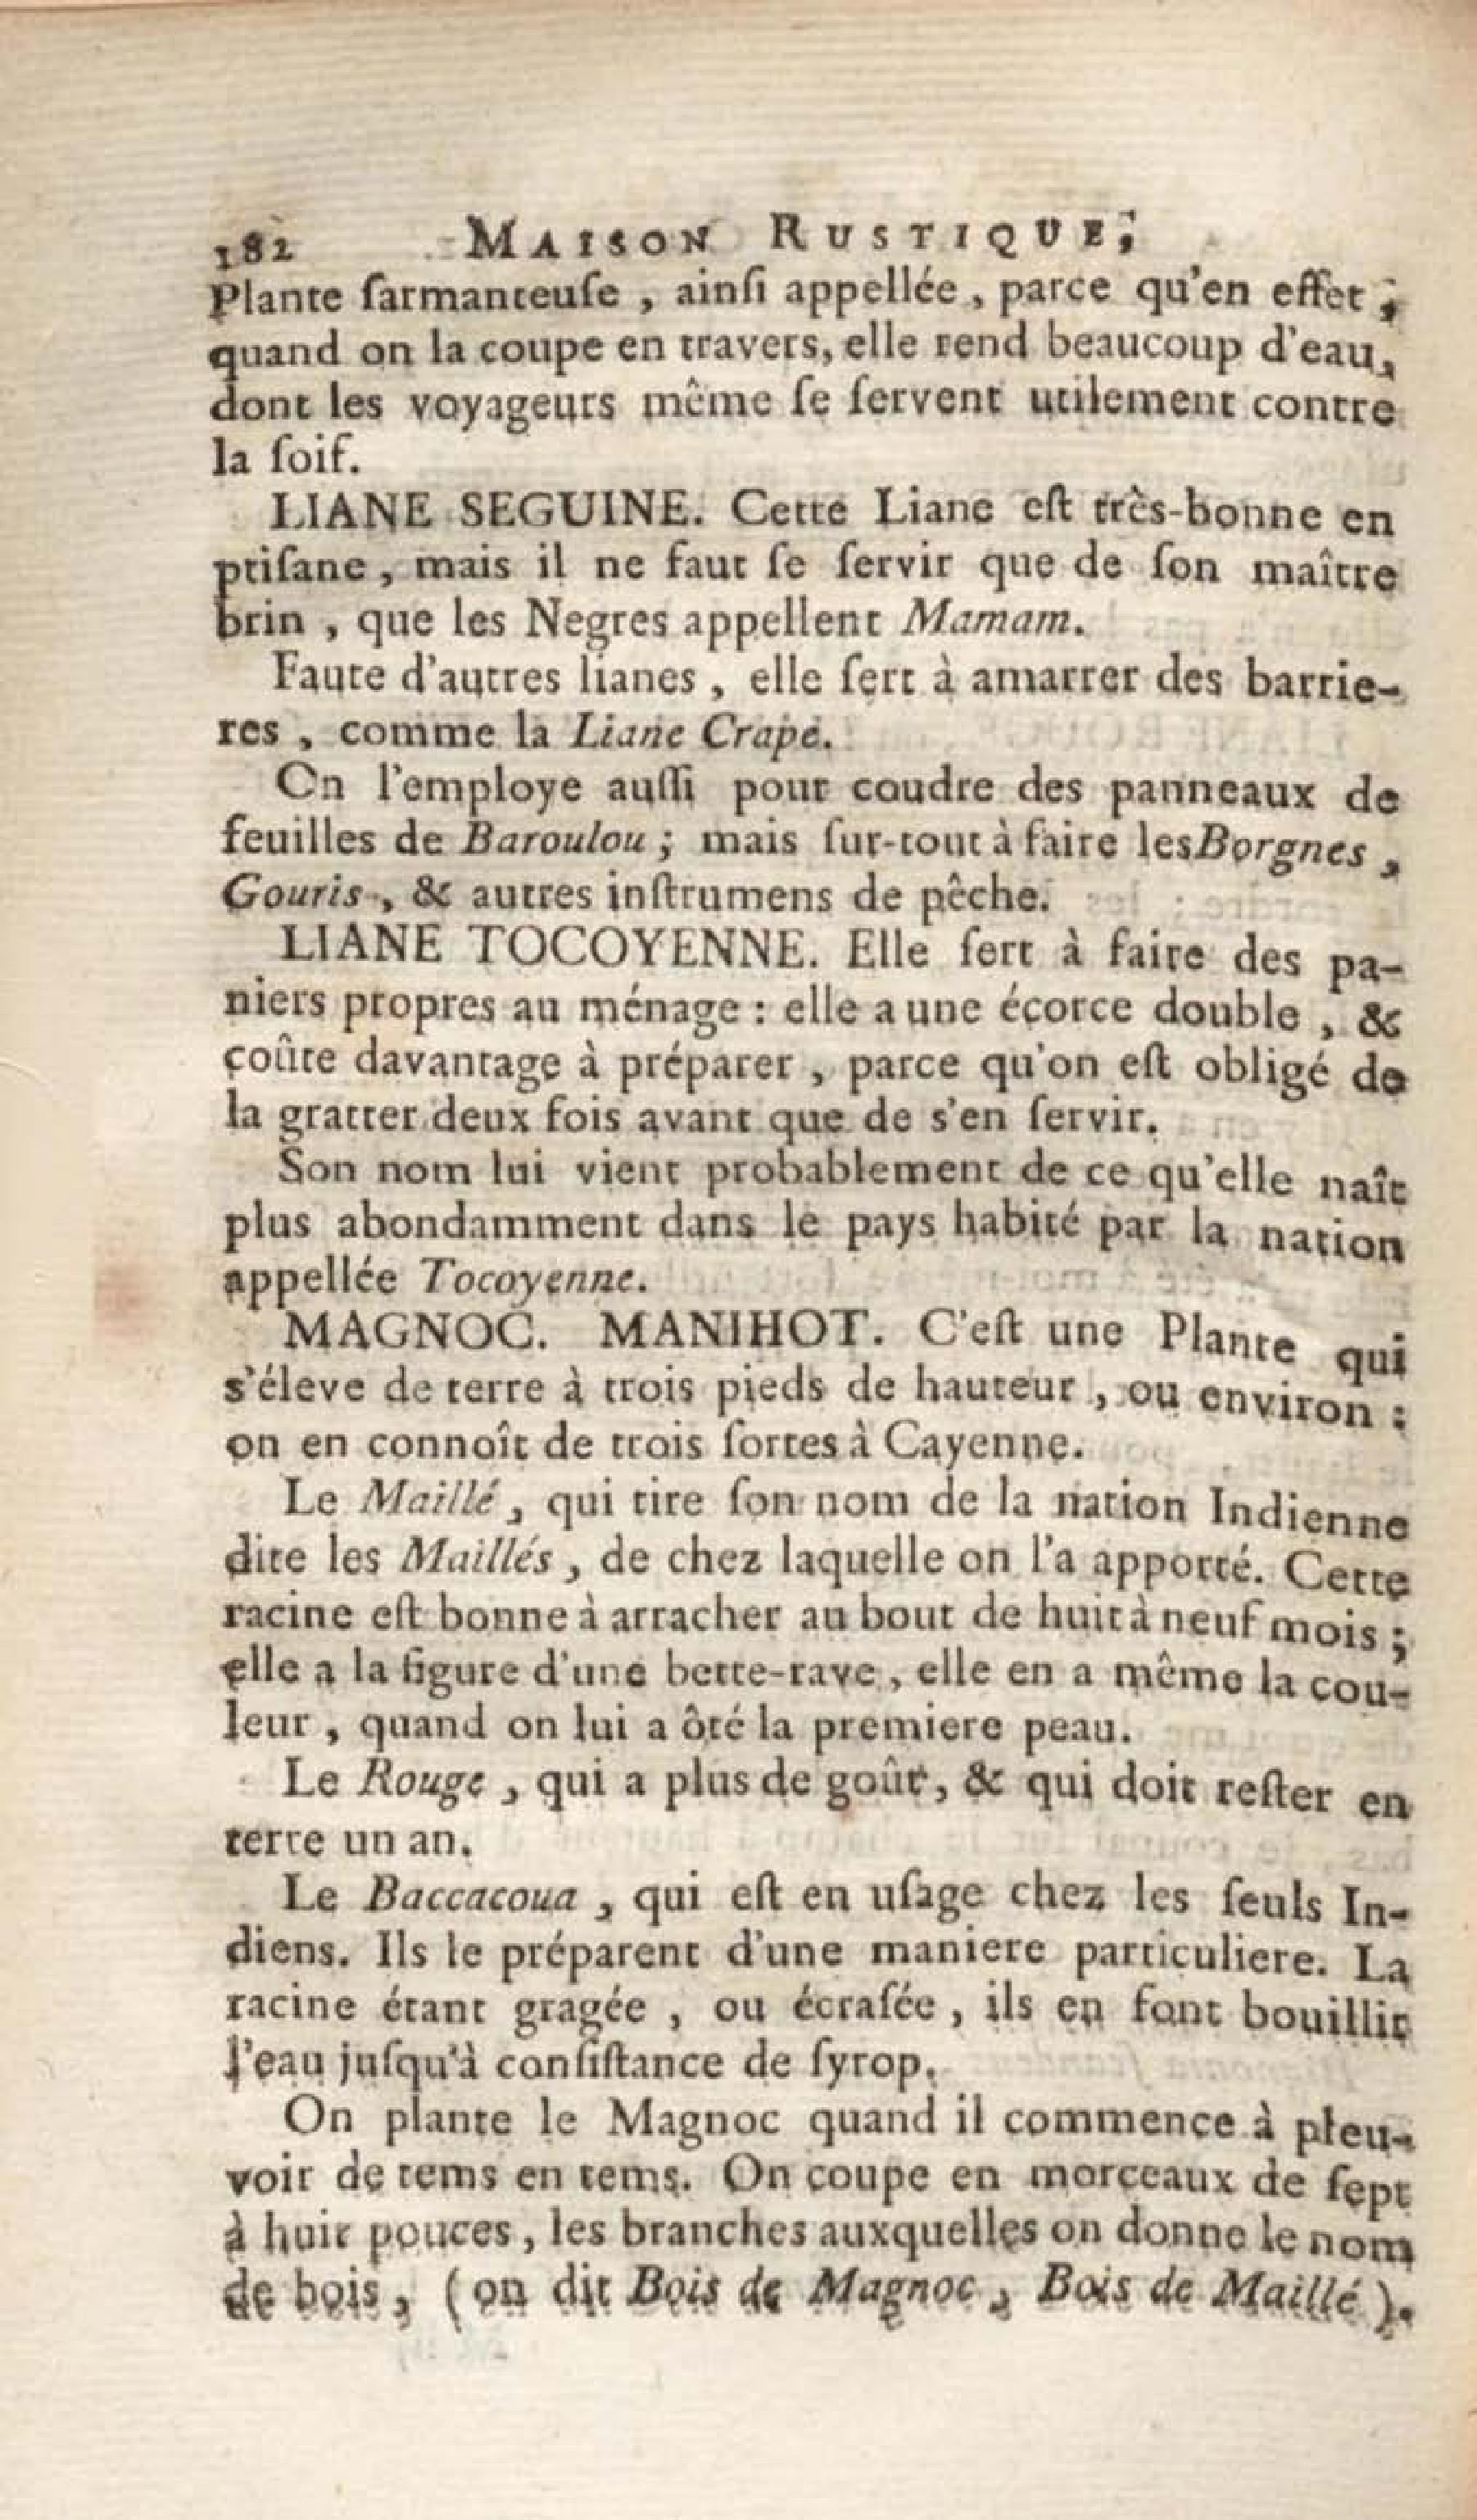 182 MAISON RUSTIQUE;
Plante ſarmanteuſe, ainſi appellée, parce qu'en effet;
quand on la coupe en travers, elle rend beaucoup d'eau,
dont les voyageurs même ſe ſervent utilement contre
la ſoif.
LIANE SEGUINE. Cette Liane eſt très-bonne en
ptiſane, mais il ne faut ſe ſervir que de ſon maître
brin, que les Negres appellent Mamam.
Faute d'autres lianes, elle ſert à amarrer des barrie-
res, comme la Liane Crape.
On l'employe auſſi pour coudre des panneaux de
feuilles de Baroulou; mais ſur-tout à faire les Borgnes,
Gouris, & autres inſtrumens de pêche.
LIANE TOCOYENNE. Elle ſert à faire des pa-
niers propres au ménage: elle a une écorce double, &
coûte davantage à préparer, parce qu'on eſt obligé de
la gratter deux fois avant que de s'en ſervir.
Son nom lui vient probablement de ce qu'elle naît
plus abondamment dans le pays habité par la nation
appellée Tocoyenne.
MAGNOC. MANIHOT. C'eſt une Plante qui
s'éleve de terre à trois pieds de hauteur, ou environ:
on en connoît de trois ſortes à Cayenne.
Le Maillé, qui tire ſon nom de la nation Indienne
dite les Maillés, de chez laquelle on l'a apporté. Cette
racine eſt bonne à arracher au bout de huit à neuf mois;
elle a la figure d'une bette-rave, elle en a même la cou-
leur, quand on lui a ôté la premiere peau.
Le Rouge, qui a plus de goût, & qui doit reſter en
terre un an.
Le Baccacoua, qui eſt en uſage chez les ſeuls In-
diens. Ils le préparent d'une maniere particuliere. La
racine étant gragée, ou écraſée, ils en font bouillir
l'eau juſqu'à conſiſtance de ſyrop.
On plante le Magnoc quand il commence à pleu-
voir de tems en tems. On coupe en morceaux de ſept
à huit pouces, les branches auxquelles on donne le nom
de bois, (on dit Bois de Magnoc, Bois de Maillé).